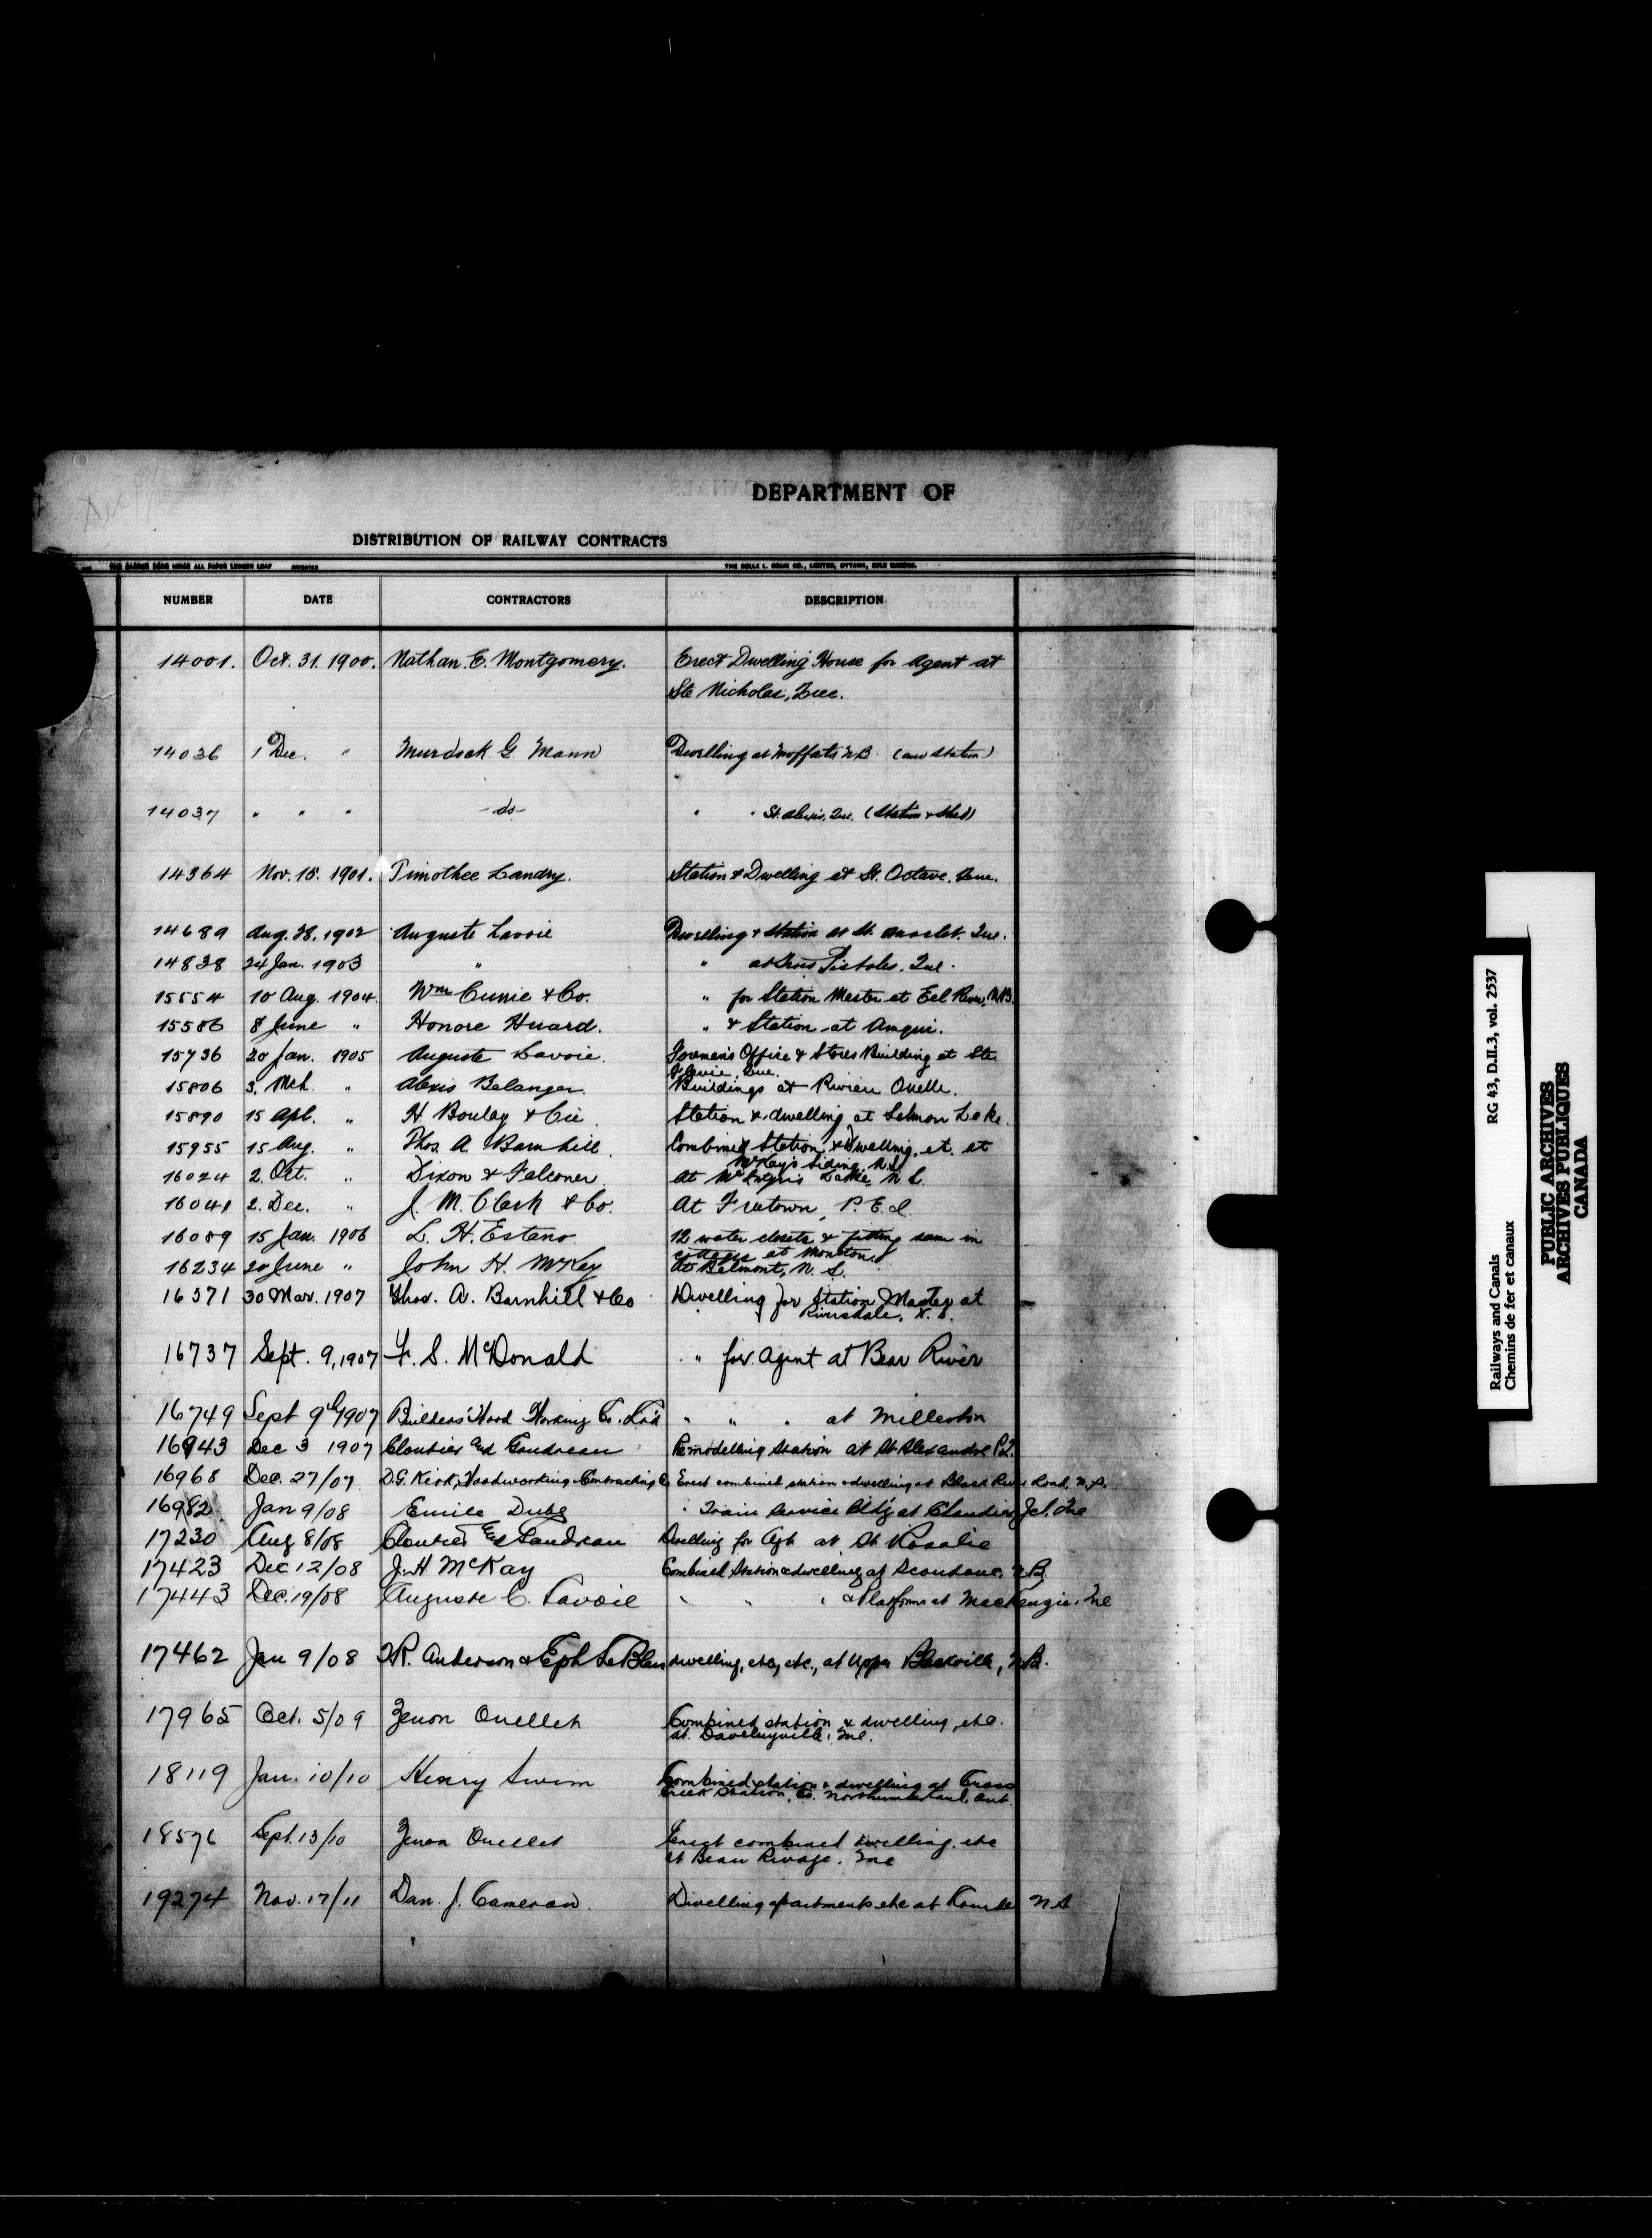 DEPARTMENT OF
DISTRIBUTION OF RAILWAY CONTRACTS
NUMBER DATE CONTRACTORS DESCRIPTION
14001. Oct. 31. 1900. Nathan. E. Montgomery. Erect Dwelling House for Agent at
Ste Nicholas, Que.
14036 1 Dec. " Murdock G. Mann Dwelling at Moffats N.B. (and Station)
14037 " " " -do- " " St. Alexis, Que. (Station & Shed)
14364 Nov. 15. 1901. Timothee Landry. Station & Dwelling at St. Octave, Que.
14689 Aug. 28. 1902 Auguste Lavoie Dwelling & Station at St. Anaclet. Que.
14838 24 Jan. 1903 " " at Trois Pistoles. Que.
15554 10 Aug. 1904. Wm Currie & Co. " for Station Master at Eel River, N.B.
15586 8 June " Honore Huard. " & Station at Amqui.
15736 20 Jan. 1905 Auguste Lavoie. Foreman's Office & Stores Building at Ste.
Flavie, Que.
15806 3. Mch. " Alexis Belanger. Buildings at Riviere Ouelle.
15890 15 Apl. " H Boulay & Cie. Station & dwelling at Salmon Lake.
15955 15 Aug. " Thos. A. Barnhill. Combined Station & Dwelling, et. at
McKay's Siding, N.S.
16024 2. Oct. " Dixon & Falconer. At McIntyre's Lake, N.S.
16041 2. Dec. " J. M. Clark & Co. At Freetown, P.E.I.
16089 15 Jan. 1906 L. H. Estano 12 water closets & fitting same in
cottages at Moncton.
16234 20 June " John H. McKay At Belmont, N.S.
16371 30 Mar. 1907 Thos. A. Barnhill & Co Dwelling for Station Master at
Riversdale, N.S.
16737 Sept. 9, 1907 F. S. McDonald " for Agent at Bear River
16749 Sept 9th 1907 Builders Wood Working Co. Ltd " " " at Millerton
16943 Dec 3 1907 Cloutier and Goudreau Remodelling Station at St. Alexandre P.Q.
16968 Dec. 27/07 D.G. Kirk, Woodworking & Contracting Co Erect combined station & dwelling at Black River Road, N.S.
16982 Jan 9/08 Emile Dube " Train Service Bldg at Chaudiere Jct. Que
17230 Aug 8/08 Cloutier and Gaudreau Dwelling for Agt. at St Rosalie
17423 Dec 12/08 J. H McKay Combined Station & dwelling at Scoudouc, N.B.
17443 Dec. 19/08 Auguste C. Lavoie " " " & Platform at MacKenzie, Que
17462 Jan 9/08 Anderson & Eph LeBlanc dwelling, etc, etc., at Upper Blackville, N.B.
17965 Oct. 5/09 Zenon Ouellet Combined station & dwelling, etc.
at Daveluyville, Que.
18119 Jan. 10/10 Henry Swim Combined station & dwelling at Cross
Creek Station, Co. Northumberland, Ont.
18576 Sept. 13/10 Zenon Ouellet Erect combined dwelling, etc
at Beau Rivage. Que
19274 Nov. 17/11 Dan. J. Cameron. Dwelling apartments etc at N.S
RG 43, D.II.3, vol. 2537
Railways and Canals
Chemins de fer et canaux
PUBLIC ARCHIVES
ARCHIVES PUBLIQUES
CANADA